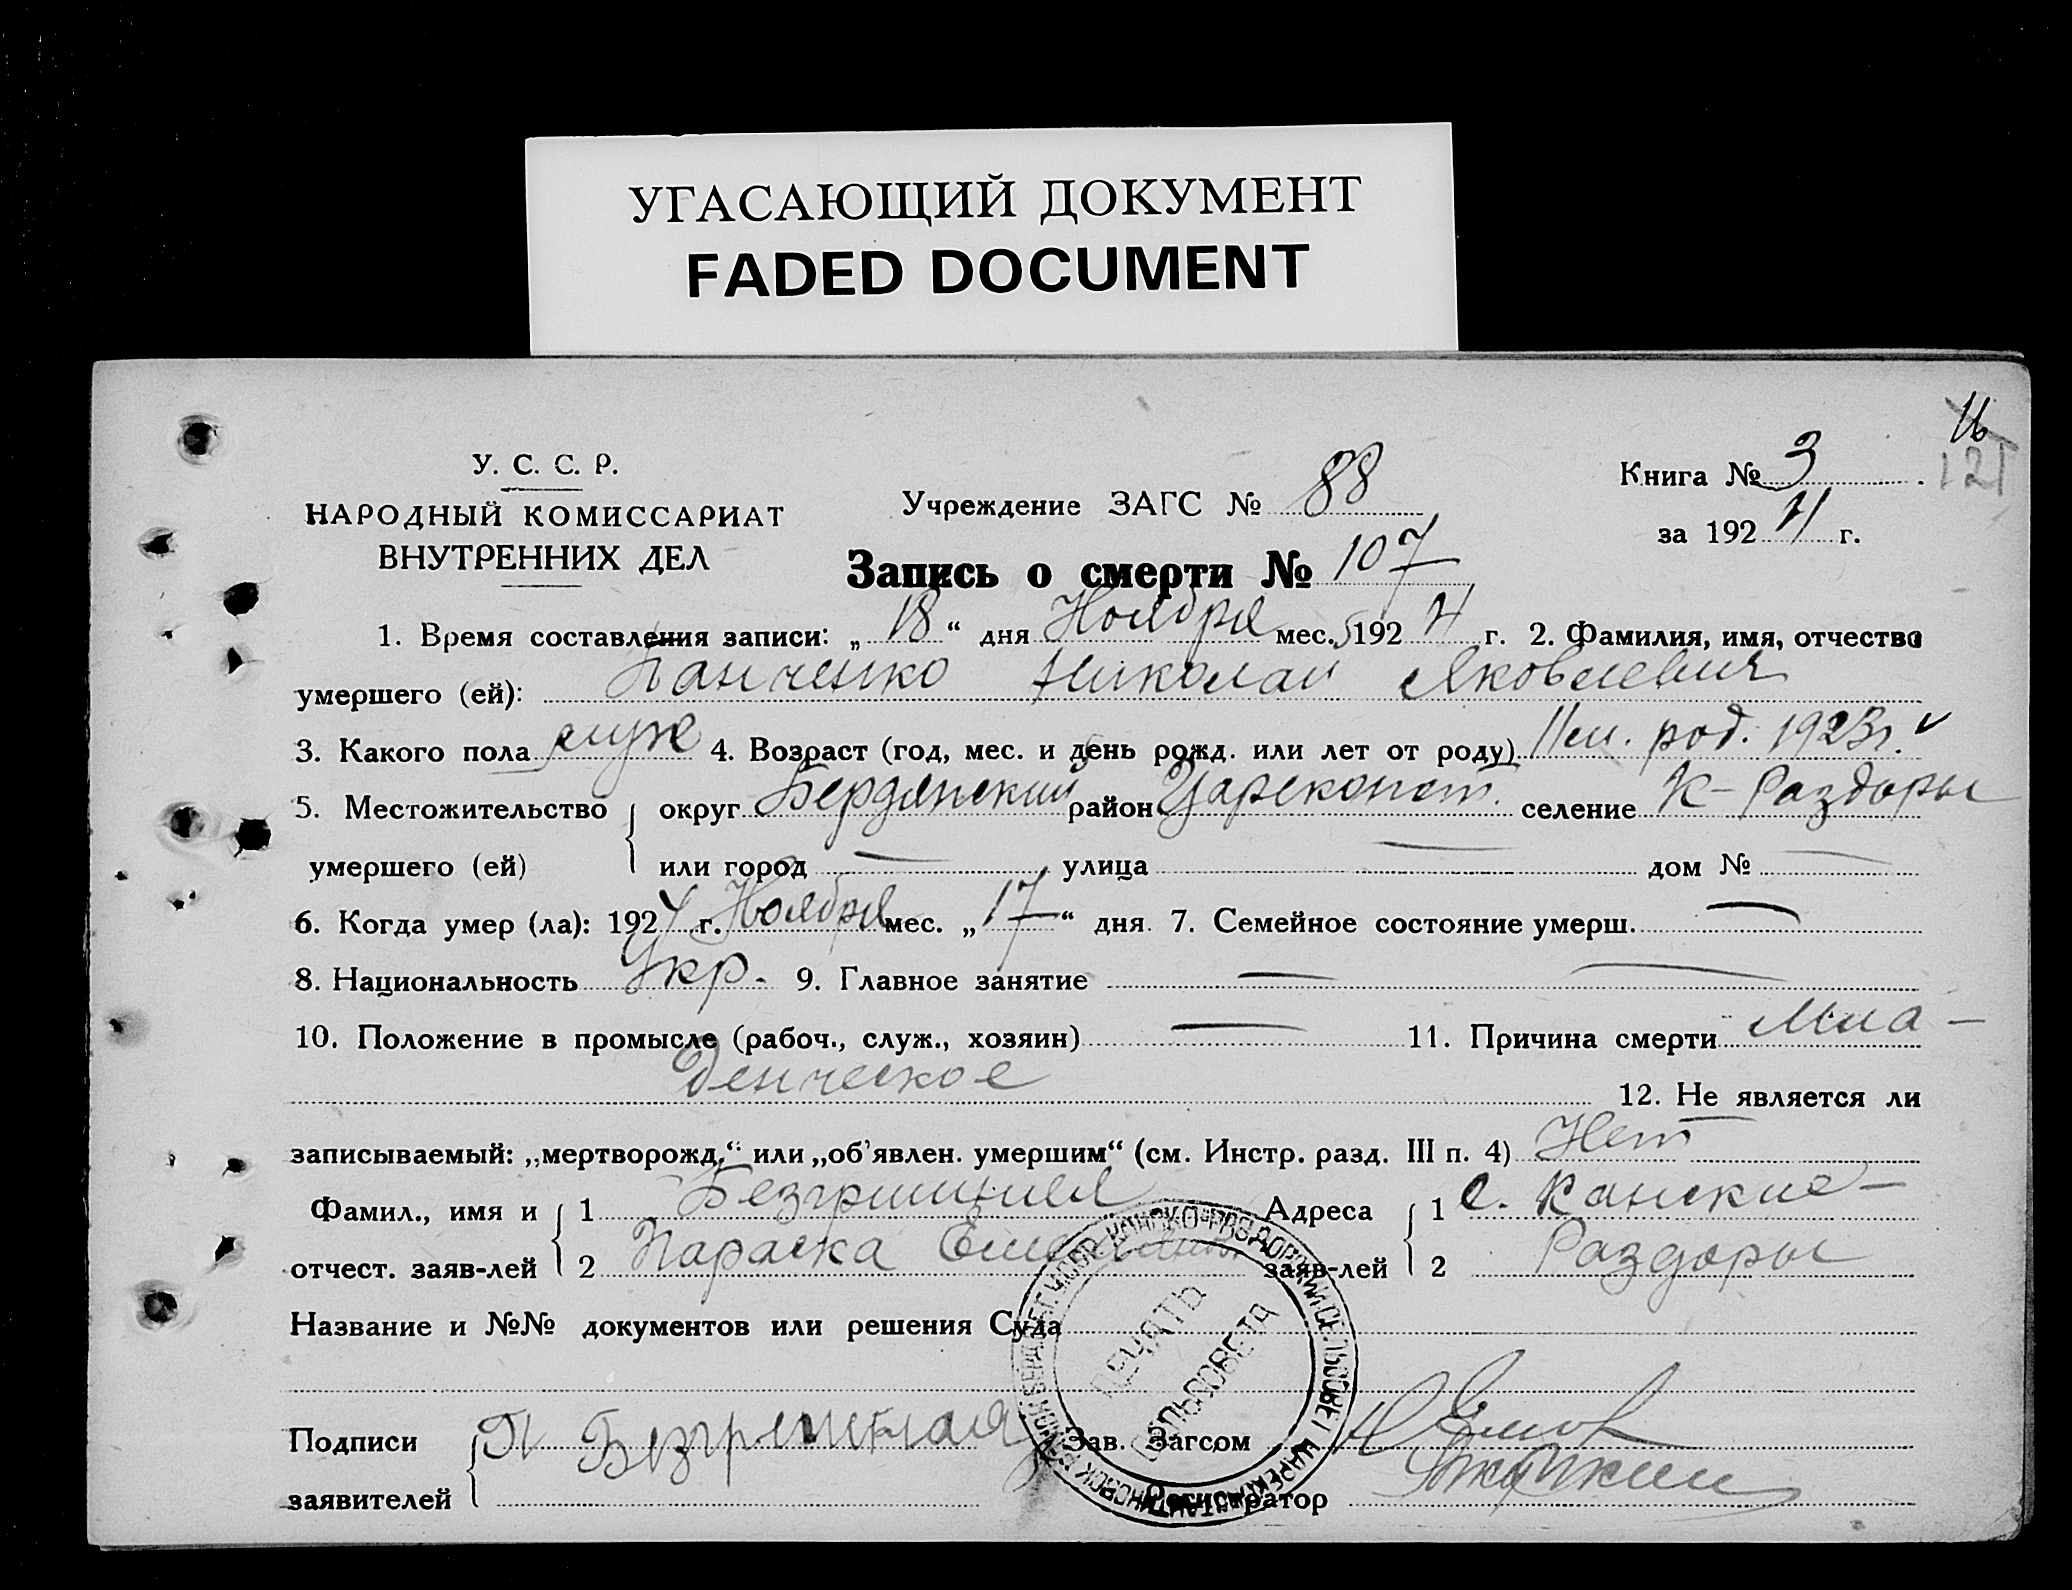 УГАСАЮЩИЙ ДОКУМЕНТ
FADED DOCUMENT
16
121
У. С. С. Р.
НАРОДНЫЙ КОМИССАРИАТ
ВНУТРЕННИХ ДЕЛ
Учреждение ЗАГС № 88
Книга № 3
за 1924 г.
Запись о смерти № 107
1. Время составления записи: „18“ дня Ноября мес. 1924 г. 2. Фамилия, имя, отчество
умершего (ей): Панченко Николай Яковлевич
3. Какого пола муж 4. Возраст (год, мес. и день рожд. или лет от роду) 11 м. род. 1923 г.
5. Местожительство округ Бердянский район Цареконст. селение К-Раздоры
умершего (ей) или город — улица — дом № —
6. Когда умер (ла): 1924 г. Ноября мес. „17“ дня. 7. Семейное состояние умерш. —
8. Национальность Укр. 9. Главное занятие — —
10. Положение в промысле (рабоч., служ., хозяин) — 11. Причина смерти Мла-
денческое 12. Не является ли
записываемый: „мертворожд.“ или „об'явлен. умершим“ (см. Инстр. разд. III п. 4) Нет
Фамил., имя и 1 Адреса 1 с. Канские-
отчест. заяв-лей 2 Параска заяв-лей 2 Раздоры
Название и №№ документов или решения Суда
Подписи П Зав. Загсом
заявителей Регистратор
ПЕЧАТЬ
СЕЛЬСОВЕТА